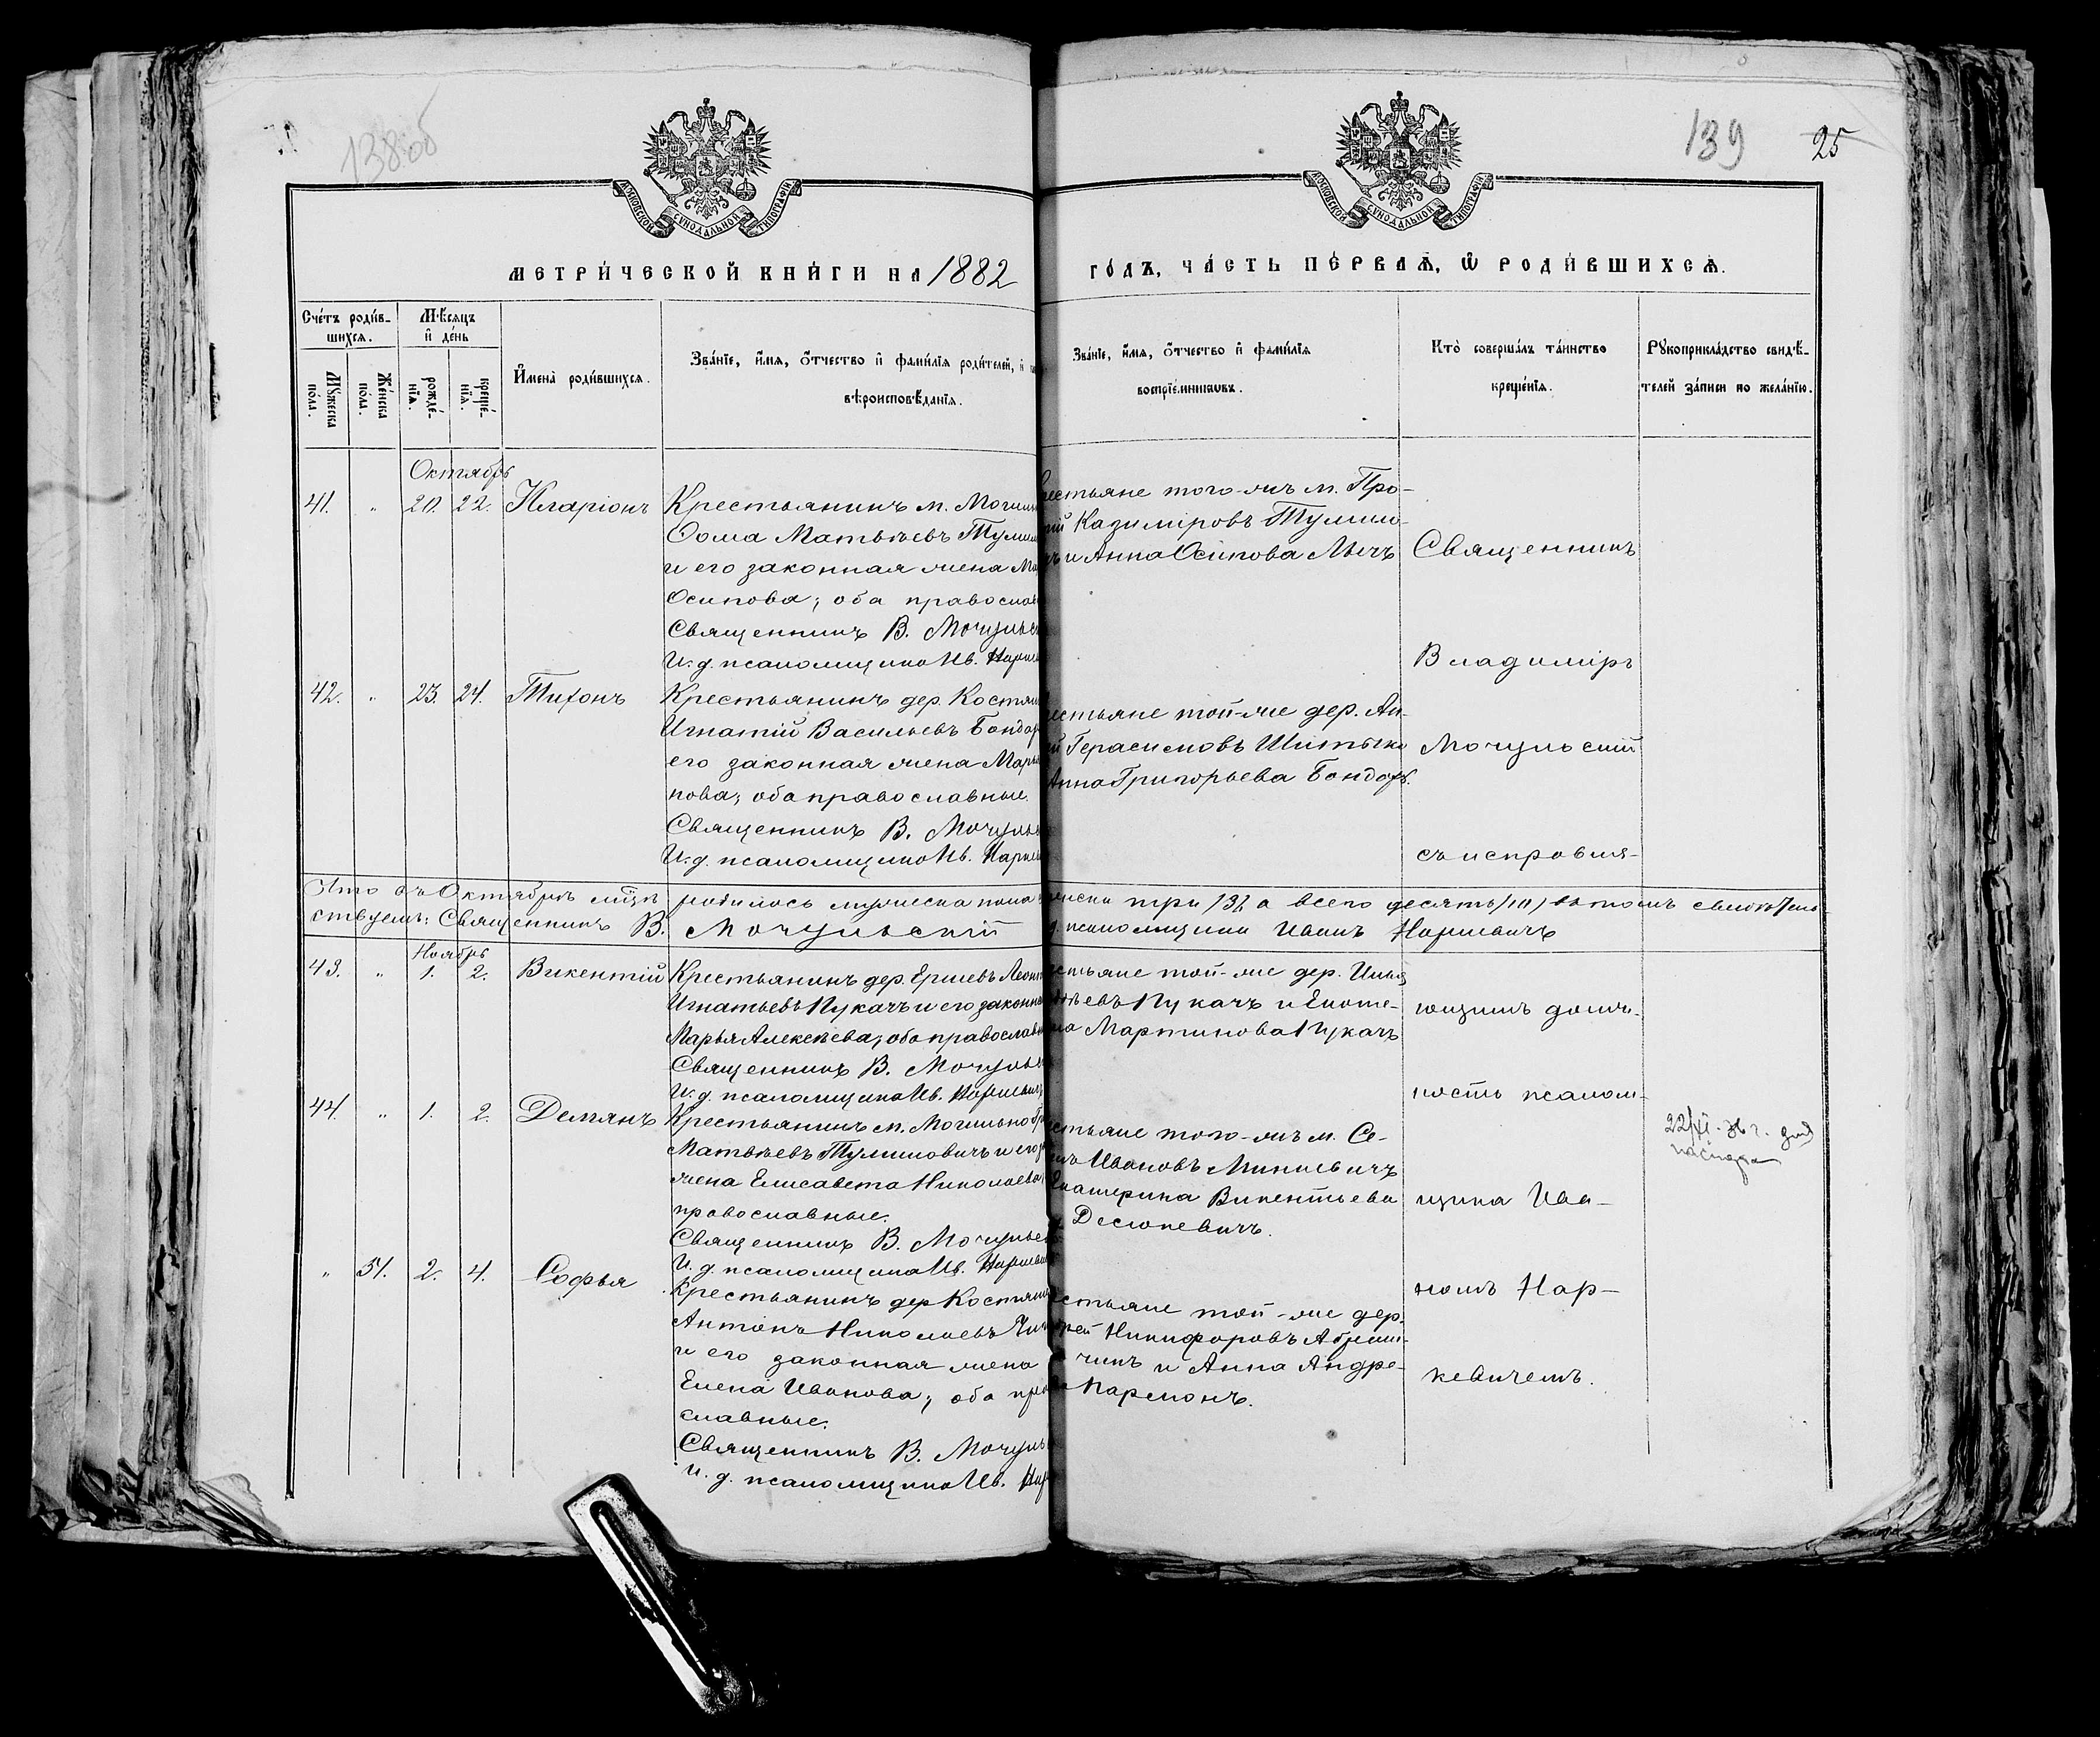 138об
139
25
МОСКОВСКОЙ СУНОДАЛЬНОЙ ТИПОГРАФІИ
МОСКОВСКОЙ СУНОДАЛЬНОЙ ТИПОГРАФІИ
МЕТРИ́ЧЕСКОЙ КНИ́ГИ НА 1882
ГО́ДЪ, ЧА́СТЬ ПЕ́РВАЯ, Ѡ РОДИ́ВШИХСЯ.
Сче́тъ роди́в-
шихся.
Му́жеска
по́ла.
Же́нска
по́ла.
Мѣ́сяцъ
и де́нь
рожде́-
нія.
креще́-
нія.
Имена̀ роди́вшихся.
Зва́ніе, и́мя, о́тчество и фами́лія роди́телей, и
вѣроисповѣ́данія.
Зва́ніе, и́мя, о́тчество и фами́лія
воспріе́мниковъ.
Кто̀ соверша́лъ та́инство
креще́нія.
Рукоприкла́дство свидѣ́-
телей за́писи по жела́нію.
Октябрь
41. " 20. 22. Иларіонъ
Крестьянинъ м. Могиль
Ѳома Матвѣевъ Тумил
и его законная жена Ма
Осипова; оба правосла
Священникъ В. Мочульс
И. д. псаломщика Ив. Нарке
рестьяне того-жъ м. Про-
Казиміровъ Тумило-
и Анна Осипова Лычъ
42. " 23. 24. Тихонъ
Крестьянинъ дер. Костяш
Игнатій Васильевъ Бондар
его законная жена Марья
пова; оба православные.
Священникъ В. Мочульс
И. д. псаломщика Ив. Нарке
естьяне той-же дер. Ан-
Герасимовъ Шитыко
Анна Григорьева Бондарь.
Священникъ
Владиміръ
Мочульскій
съ исправля-
ющимъ долж-
ность псалом-
щика Ива-
номъ Нар-
кевичемъ.
Что въ Октябрѣ мѣцѣ родилось мужеска пола
женска три /3/, а всего десять /10/ въ томъ свидѣтель-
ствуемъ: Священникъ В. Мочульскій
псаломщика Иванъ Наркевичъ
Ноябрь
43. " 1. 2. Викентій
Крестьянинъ дер. Ершевъ Леонт
Игнатьевъ Пукачъ и его законна
Марья Алексѣева; оба православн
Священникъ В. Мочульс
И. д. псаломщика Ив. Наркевичъ
естьяне той-же дер. Илья
ѣевъ Пукачъ и Екате-
на Мартинова Пукачъ
44. " 1. 2. Демянъ
Крестьянинъ м. Могильно
Матвѣевъ Тумиловичъ и его
жена Елисавета Николаева
православные.
Священникъ В. Мочульс
И. д. псаломщика Ив. Наркевич
естьяне того-жъ м. Се-
Ивановъ Минкевичъ
Екатерина Викентьева
Десюкевичъ.
22/XI-36 г. для
паспорта
" 51. 2. 4. Софья
Крестьянинъ дер Костяш
Антонъ Николаевъ
и его законная жена
Елена Иванова; оба пра
славные.
Священникъ В. Мочуль
И. д. псаломщика Ив. Нар
естьяне той-же дер.
рей Никифоровъ Абрам-
чикъ и Анна Андре-
Пармонъ.